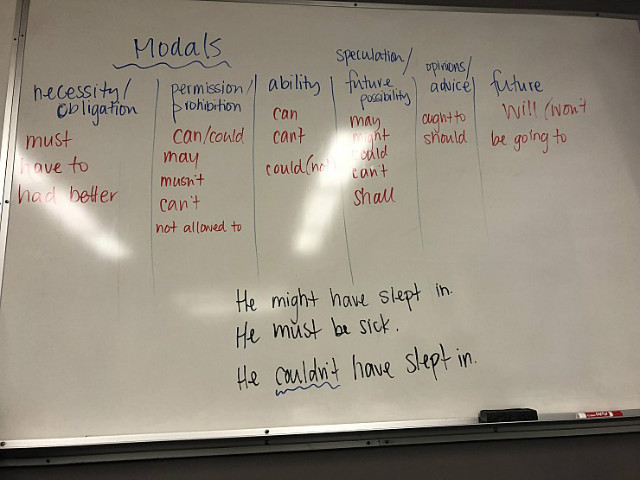 Modals
necessity/
obligation
must
have to
had better
permission/
prohibition
can/could
may
musn't
can't
not allowed to
ability
can
can't
could(not)
speculation/
future
possibility
may
might
could
can't
shall
opinions/
advice
ought to
should
future
will/won't
be going to
He might have slept in.
He must be sick.
He couldn't have slept in.